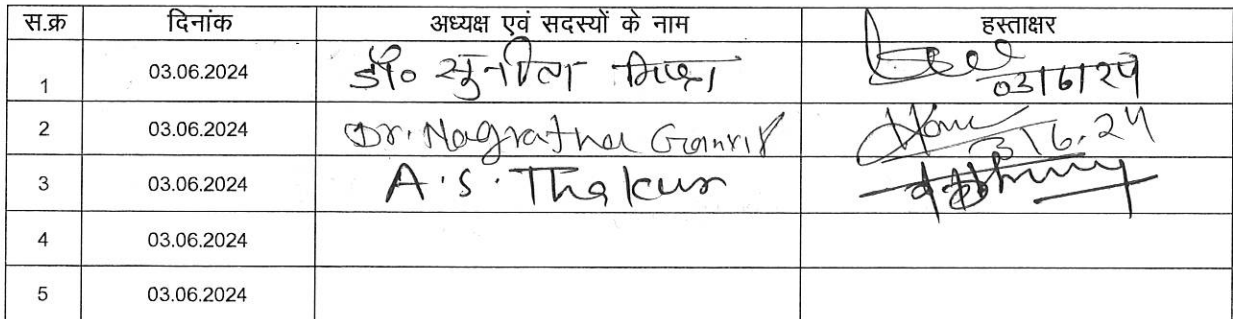 स.क्र दिनांक अध्यक्ष एवं सदस्यों के नाम हस्ताक्षर
1 03.06.2024 डॉ० सुनीता मिश्रा 03/6/24
2 03.06.2024 Dr. Nagratna Ganvir 3/6.24
3 03.06.2024 A.S. Thakur
4 03.06.2024
5 03.06.2024